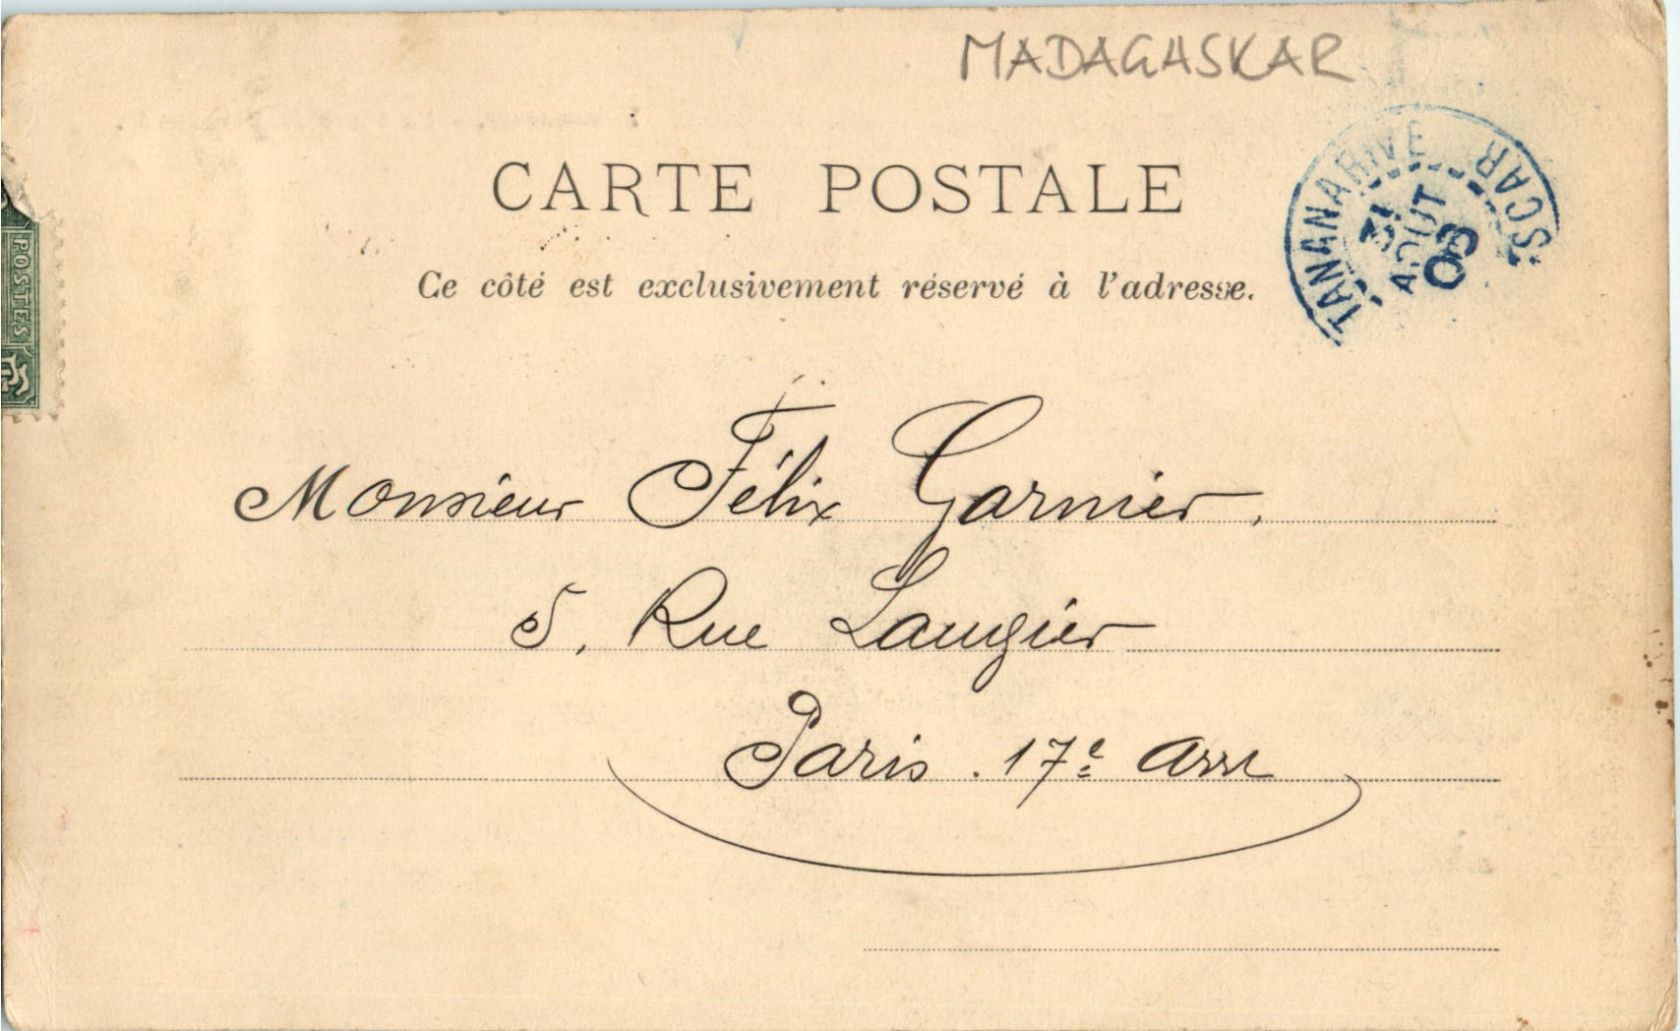 MADAGASKAR
CARTE POSTALE
Ce côté est exclusivement réservé à l'adresse.
TANANARIVE
31
AOUT
03
SCAR
POSTES
Monsieur Félix Garnier.
5, Rue Laugier
Paris. 17e Arrt